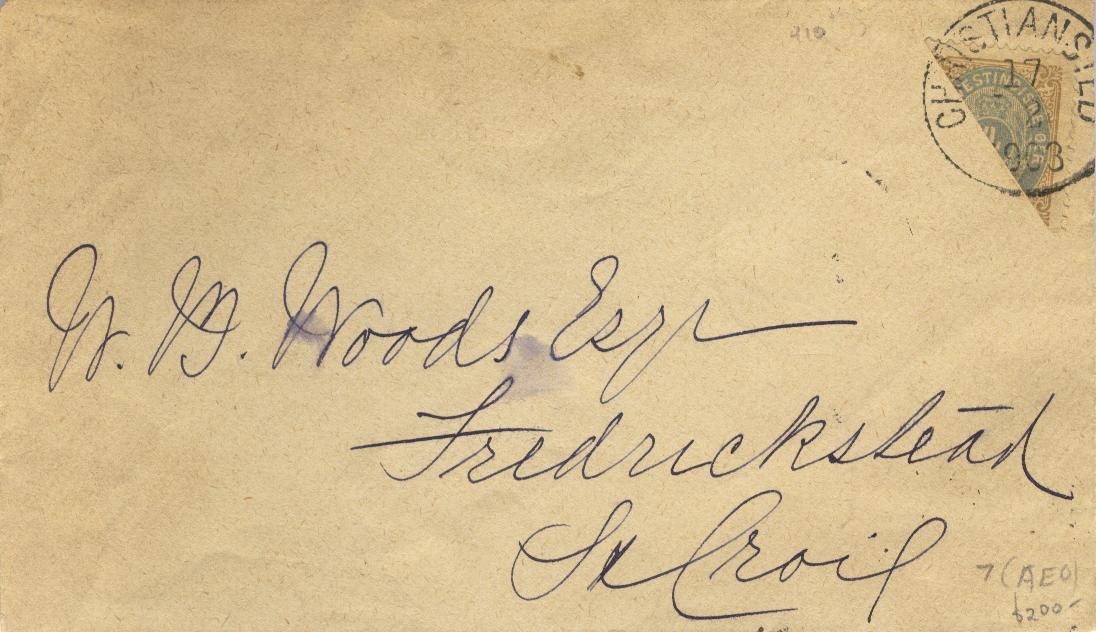 210
CHRISTIANSTED
17
1903
ESTIND
4
CEN
W. B. Woods Esqr
Fredrickstead
St Croix
7 (AEO)
$200-